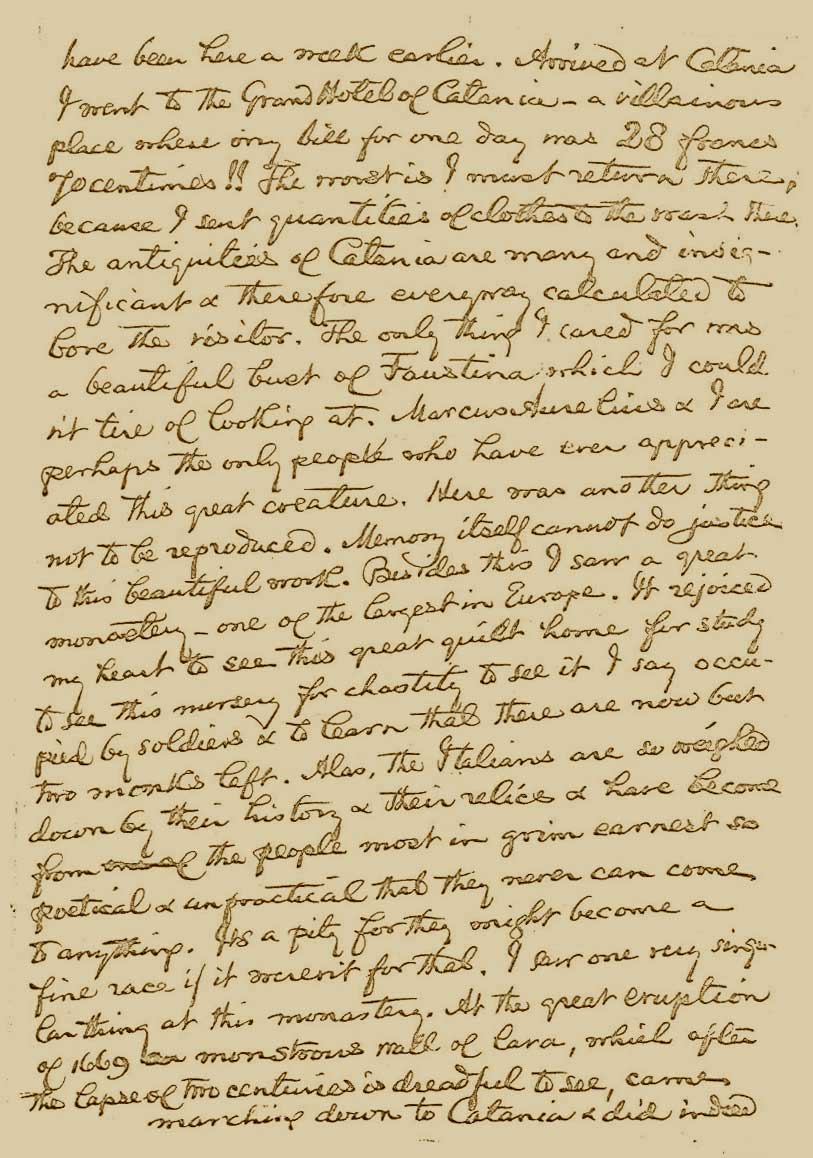 have been here a week earlier. Arrived at Catania
I went to the Grand Hotel of Catania – a villainous
place where my bill for one day was 28 francs
70 centimes!! The worst is I must return there,
because I sent quantities of clothes to the wash there.
The antiquities of Catania are many and insig-
nificant & therefore everyway calculated to
bore the visitor. The only thing I cared for was
a beautiful bust of Faustina which I could
n't tire of looking at. Marcus Aurelius & I are
perhaps the only people who have ever appreci-
ated this great creature. Here was another thing
not to be reproduced. Memory itself cannot do justice
to this beautiful work. Besides this I saw a great
monastery – one of the largest in Europe. It rejoiced
my heart to see this great quilt home for study
to see this nursery for chastity to see it I say occu-
pied by soldiers & to learn that there are now but
two monks left. Alas, the Italians are so weighed
down by their history & their relics & have become
from the people most in grim earnest so
poetical & unpractical that they never can come
to anything. Its a pity for they might become a
fine race if it weren't for that. I saw one very singu-
lar thing at this monastery. At the great eruption
of 1669 a monstrous wall of lava, which after
the lapse of two centuries is dreadful to see, came
marching down to Catania & did indeed